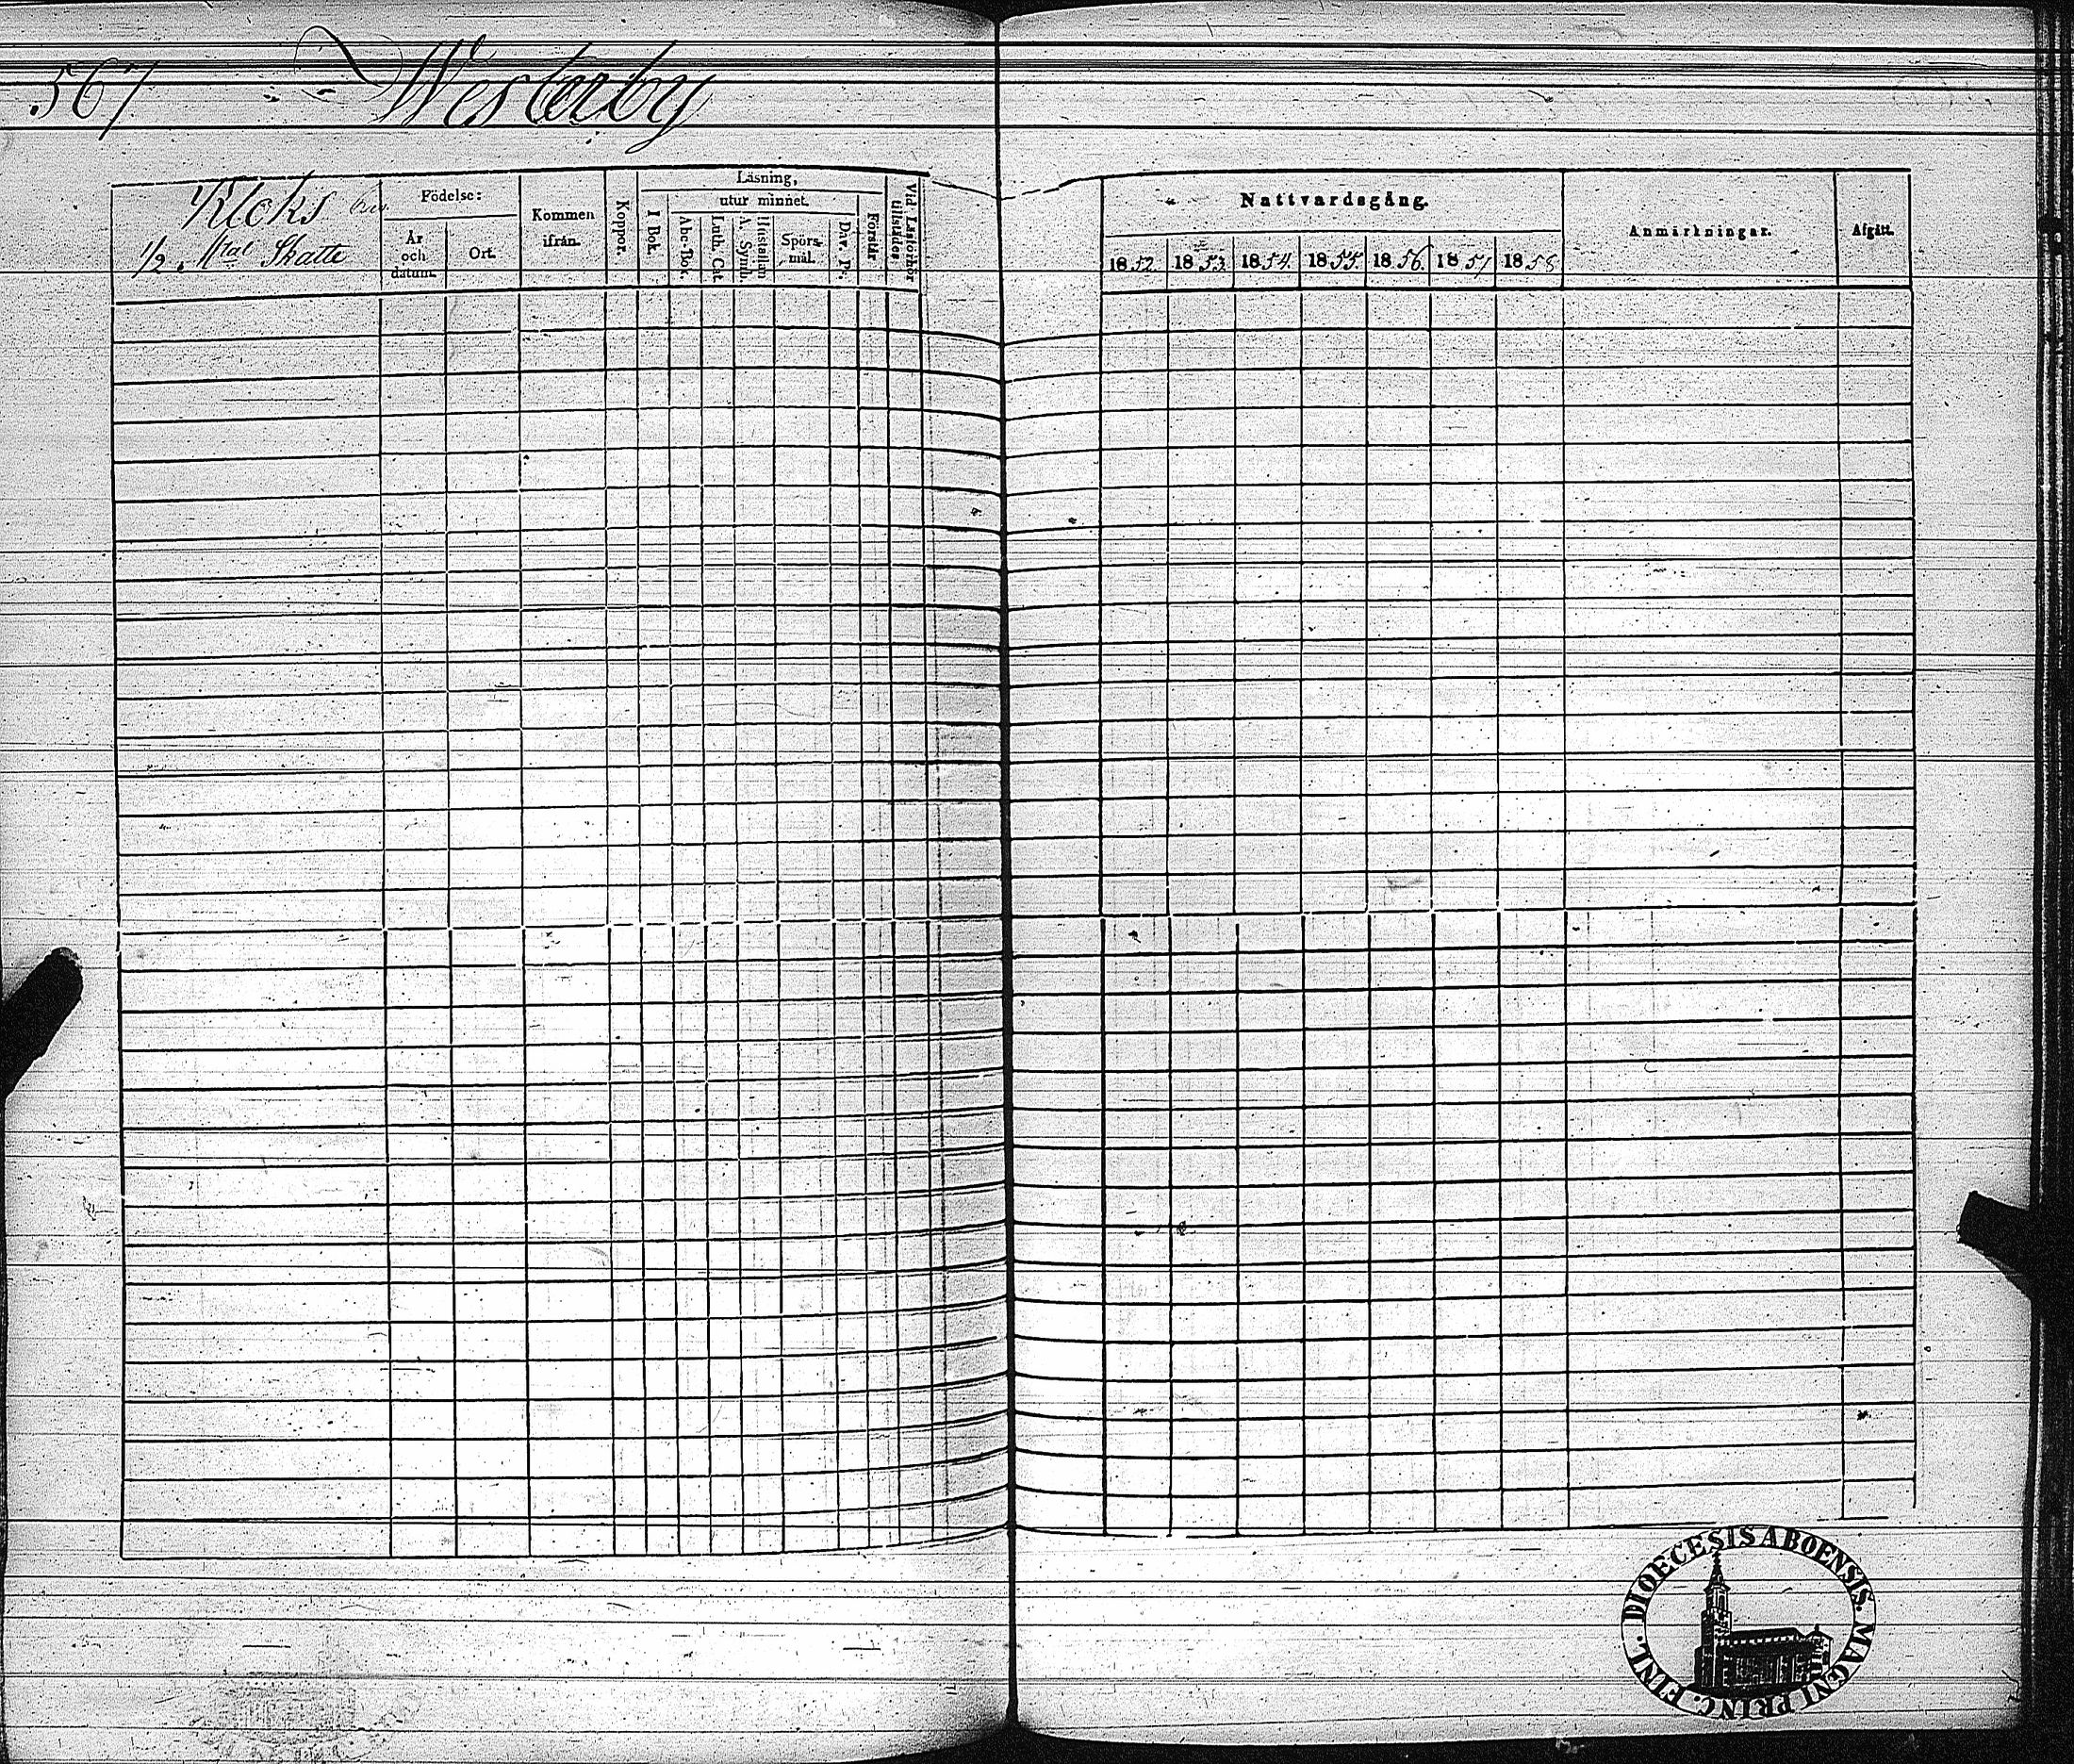 567
Westerby
Klcks
1/2 Mtal Skatte
Födelse:
År och datum.
Ort.
Kommen ifrån.
Koppor.
Läsning,
I Bok.
utur minnet.
Abc-Bok.
Luth. Cat.
A. Symb.
Hustaflan
Spörsmål.
Dav. Ps.
Förstår
Vid Läsförhör tillstädes
Nattvardsgång.
1852. 1853. 1854. 1855. 1856. 1857 1858
Anmärkningar.
Afgått.
DIOECESIS ABOENSIS. MAGNI PRINC. FINL.